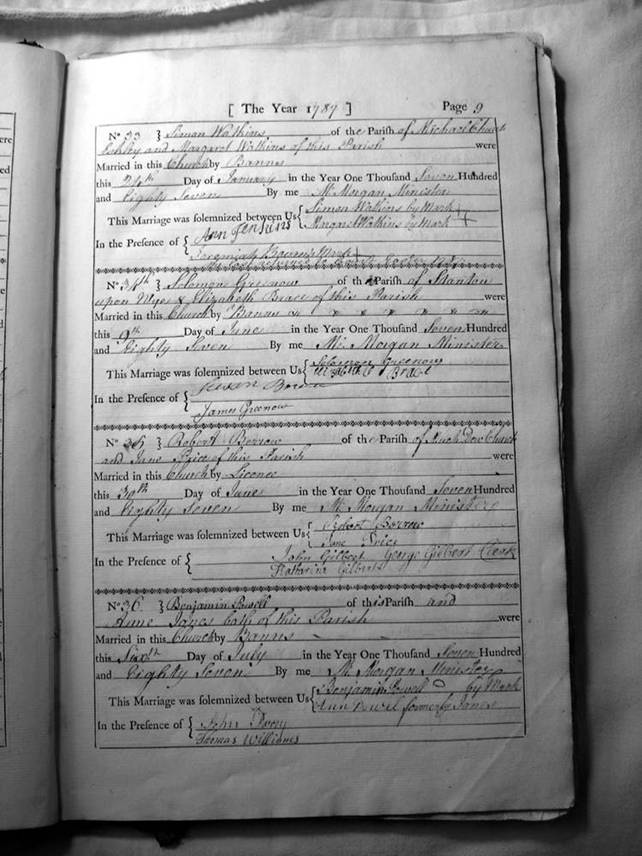 [ The Year 1787 ] Page 9
No 33 } Simon Watkins of the Parish of Michael Church
Eskley and Margaret Watkins of this Parish were
Married in this Church by Banns
this 24th Day of January in the Year One Thousand Seven Hundred
and Eighty Seven By me M. Morgan Minister
This Marriage was solemnized between Us { Simon Watkins by Mark +
Margaret Watkins by Mark +
In the Presence of { Ann Jenkins
Jeremiah Mark +
No 34th } Solomon Greenow of the Parish of Stanton
upon Wye & Elizabeth Brace of this Parish were
Married in this Church by Banns
this 9th Day of June in the Year One Thousand Seven Hundred
and Eighty Seven By me M. Morgan Minister
This Marriage was solemnized between Us { Solomon Greenow
Brace
In the Presence of {
James Greenow
No 35 } Robert Berrow of the Parish of Much Dew Church
and Jane Price of this Parish were
Married in this Church by Licence
this 30th Day of June in the Year One Thousand Seven Hundred
and Eighty Seven By me M. Morgan Minister
This Marriage was solemnized between Us { Robert Berrow
Jane Price
In the Presence of { John Gilbert George Gilbert Clerk
Katharine Gilbert
No 36 } Benjamin Powell of this Parish and
Anne Janes both of this Parish were
Married in this Church by Banns
this Sixth Day of July in the Year One Thousand Seven Hundred
and Eighty Seven By me M. Morgan Minister
This Marriage was solemnized between Us { Benjamin Powell by Mark
Ann Powel formerly Janes
In the Presence of { John
Thomas Williams